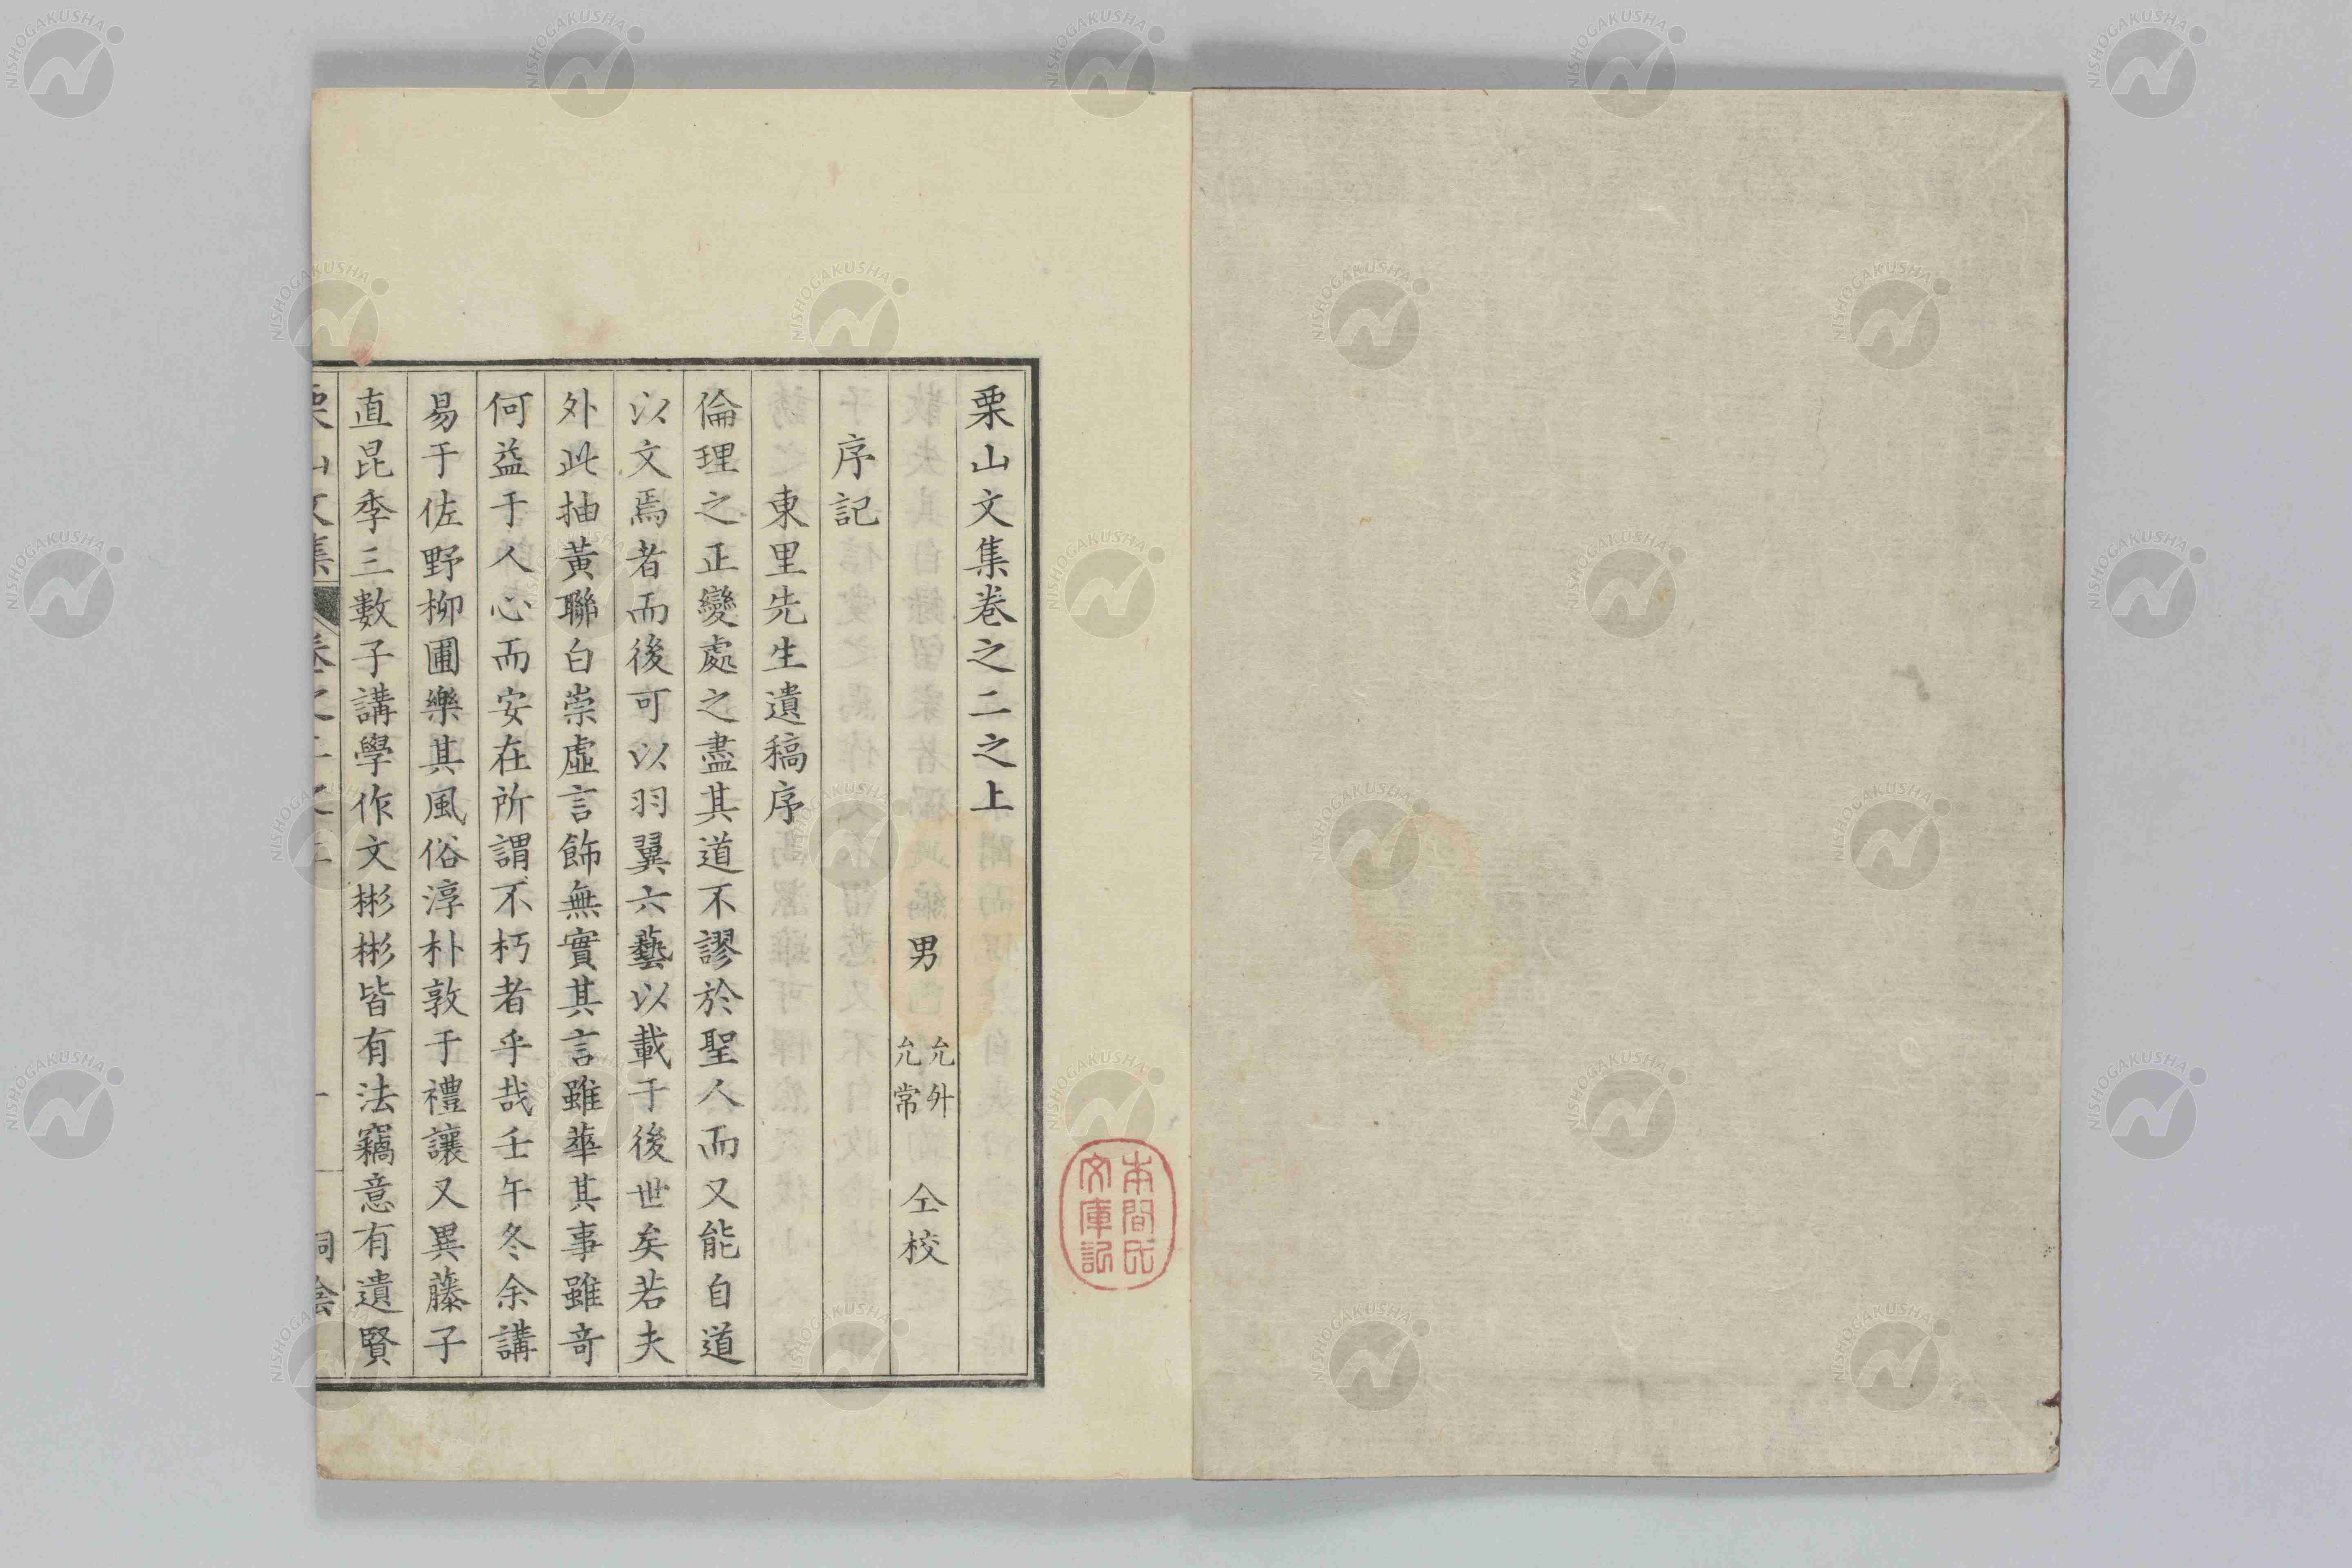 栗山文集卷之二之上
男 允外 允常 仝校
序記
東里先生遺稿序
倫理之正變處之盡其道不謬於聖人而又能自道
以文焉者而後可以羽翼六藝以載于後世矣若夫
外此抽黃聯白崇虛言飾無實其言雖華其事雖奇
何益于人心而安在所謂不朽者乎哉壬午冬余講
易于佐野柳圃樂其風俗淳朴敦于禮讓又異藤子
直昆季三數子講學作文彬彬皆有法竊意有遺賢
栗山文集 卷之二之上 一
本間氏
文庫記
NISHOGAKUSHA